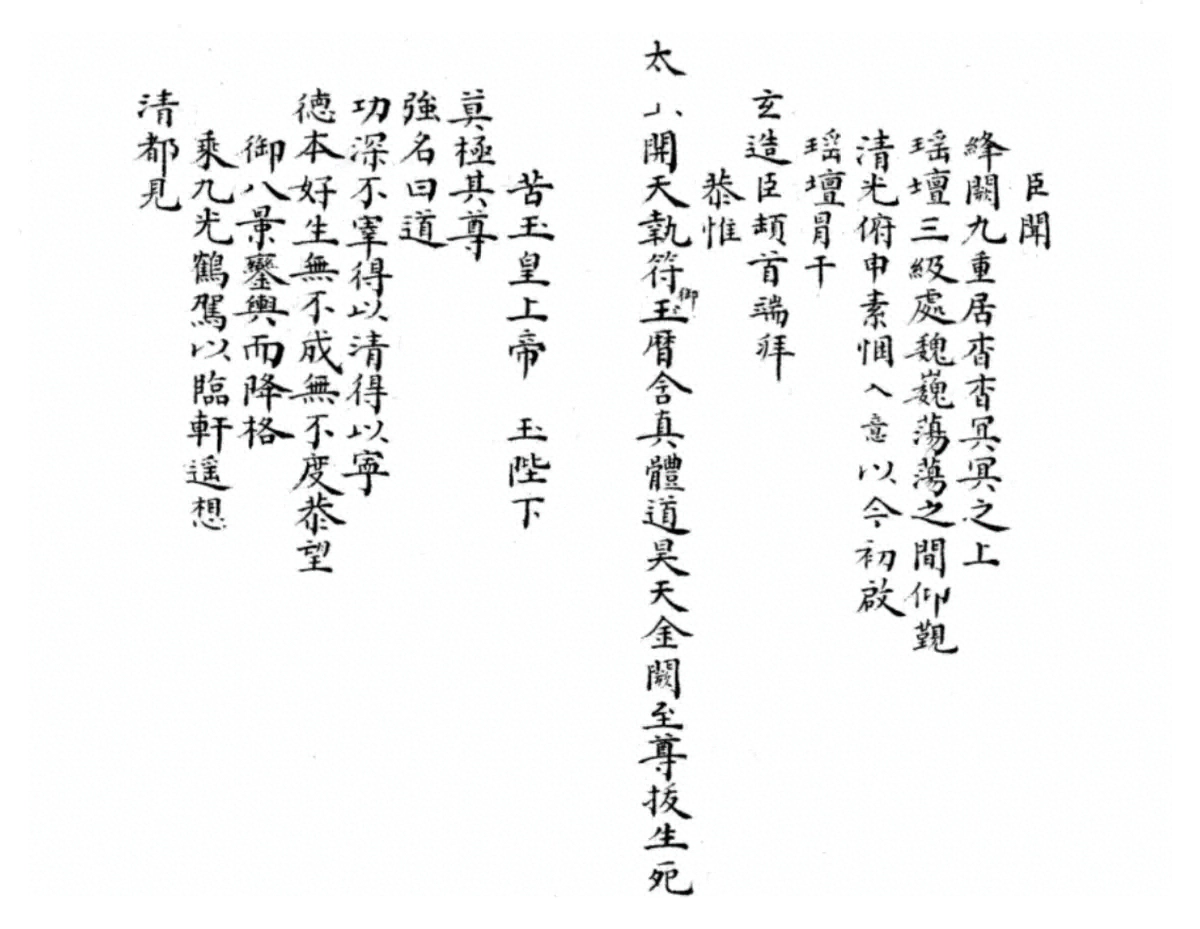 臣聞
絳闕九重居杳杳冥冥之上
瑶壇三級處魏巍蕩蕩之間仰觀
清光俯申素悃入意以今初啟
瑶壇冐干
玄造臣頡首端拜
恭惟
太八開天執符御玉曆含真體道昊天金闕至尊拔生死
苦玉皇上帝 玉陛下
莫極其尊
強名曰道
功深不宰得以清得以寧
德本好生無不成無不度恭望
御八景鑾輿而降格
乘九光鶴駕以臨軒遥想
清都見